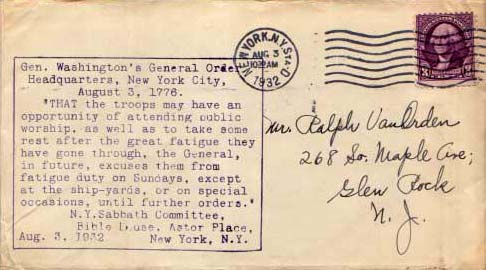 Gen. Washington's General Order
Headquarters, New York City,
August 3, 1776.
"THAT the troops may have an
opportunity of attending public
worship, as well as to take some
rest after the great fatigue they
have gone through, the General,
in future, excuses them from
fatigue duty on Sundays, except
at the ship-yards, or on special
occasions, until further orders."
N.Y.Sabbath Committee,
Bible House, Astor Place,
Aug. 3, 1932 New York, N.Y.
NEW YORK, N.Y. STA. D
AUG 3
AM
1932
3 3
Mr. Ralph VanOrden
268 So. Maple Ave;
Glen Rock
N. J.